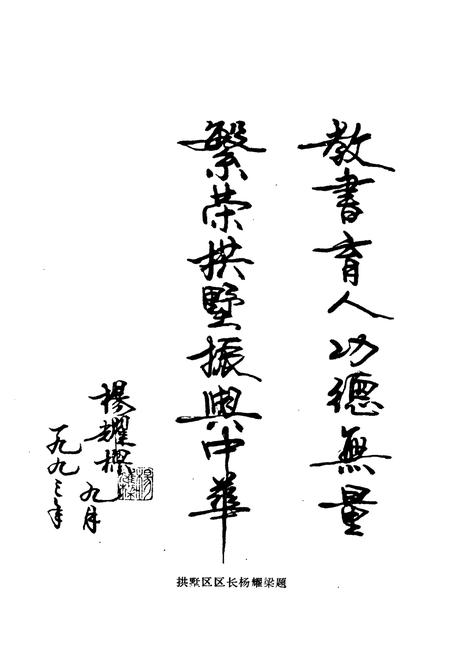 教書育人功德無量
繁荣拱墅振興中華
楊耀樑
一九九三年
九月
拱墅区区长杨耀梁题